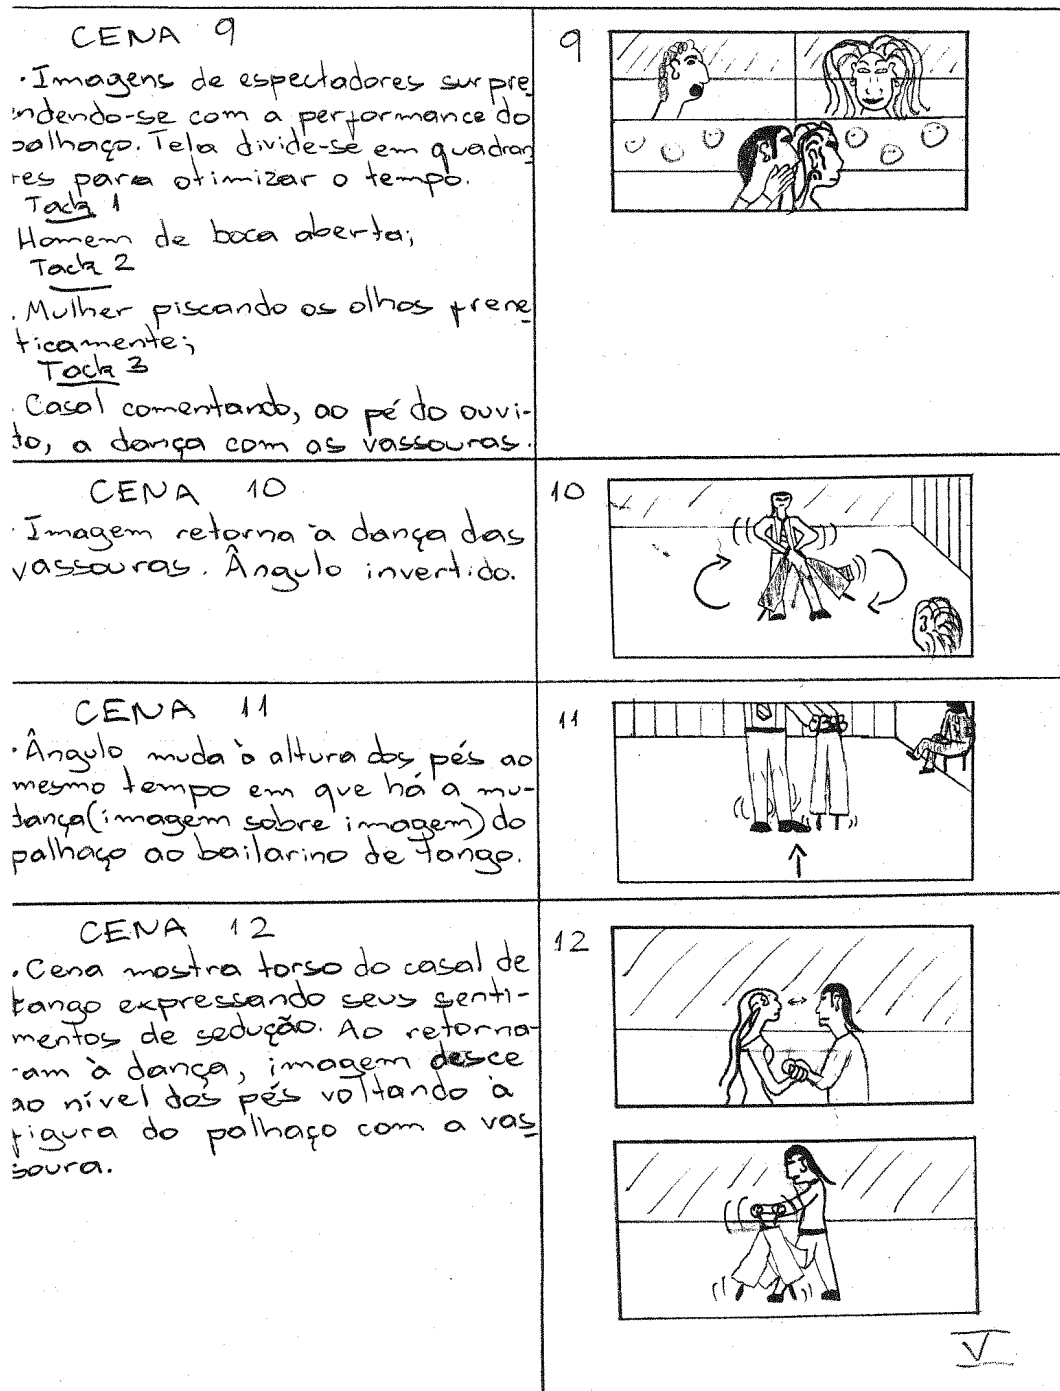 CENA 9
9
.Imagens de espectadores surpre
endendo-se com a performance do
palhaço. Tela divide-se em quadran
tes para otimizar o tempo.
Tack 1
Homem de boca aberta;
Tack 2
.Mulher piscando os olhos frene
ticamente;
Tack 3
.Casal comentando, ao pé do ouvi-
do, a dança com as vassouras.
CENA 10
10
.Imagem retorna à dança das
vassouras. Ângulo invertido.
CENA 11
11
.Ângulo muda à altura dos pés ao
mesmo tempo em que há a mu-
dança (imagem sobre imagem) do
palhaço ao bailarino de tango.
CENA 12
12
.Cena mostra torso do casal de
tango expressando seus senti-
mentos de sedução. Ao retorna-
ram à dança, imagem desce
ao nível dos pés voltando à
figura do palhaço com a vas
soura.
V